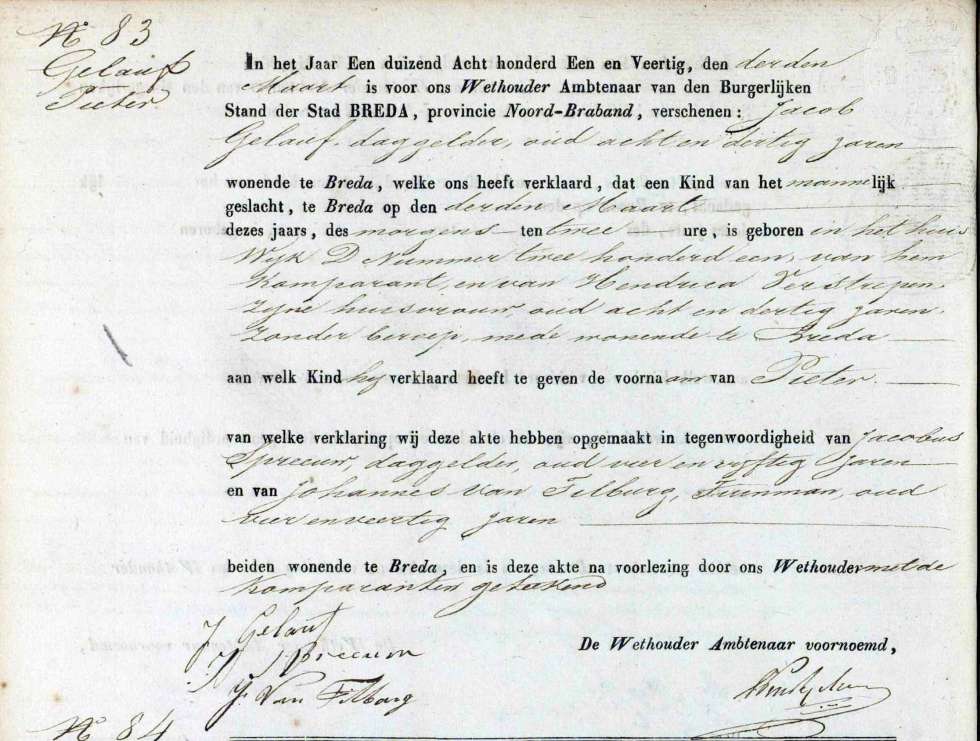 No 83
Gelauf
Pieter
In het Jaar Een duizend Acht honderd Een en Veertig, den derden
Maart is voor ons Wethouder Ambtenaar van den Burgerlijken
Stand der Stad BREDA, provincie Noord-Braband, verschenen: Jacob
Gelauf, daggelder, oud acht en dertig jaren
wonende te Breda, welke ons heeft verklaard, dat een Kind van het mannelijk
geslacht, te Breda op den derden Maart
dezes jaars, des morgens ten twee ure, is geboren in het huis
Wijk D Nummer twee honderd een, van hem
Komparant, en van Hendrica Verstrepen
zijne huisvrouw, oud acht en dertig jaren,
zonder beroep, mede wonende te Breda
aan welk Kind hij verklaard heeft te geven de voornaam van Pieter.
van welke verklaring wij deze akte hebben opgemaakt in tegenwoordigheid van Jacobus
Spreeuw, daggelder, oud vier en vijftig jaren
en van Johannes van Tilburg, oud
vier en veertig jaren
beiden wonende te Breda, en is deze akte na voorlezing door ons Wethouder met de
Komparanten geteekend
J Gelauf
J Spreeuw
J. Van Tilborg
De Wethouder Ambtenaar voornoemd,
No 84